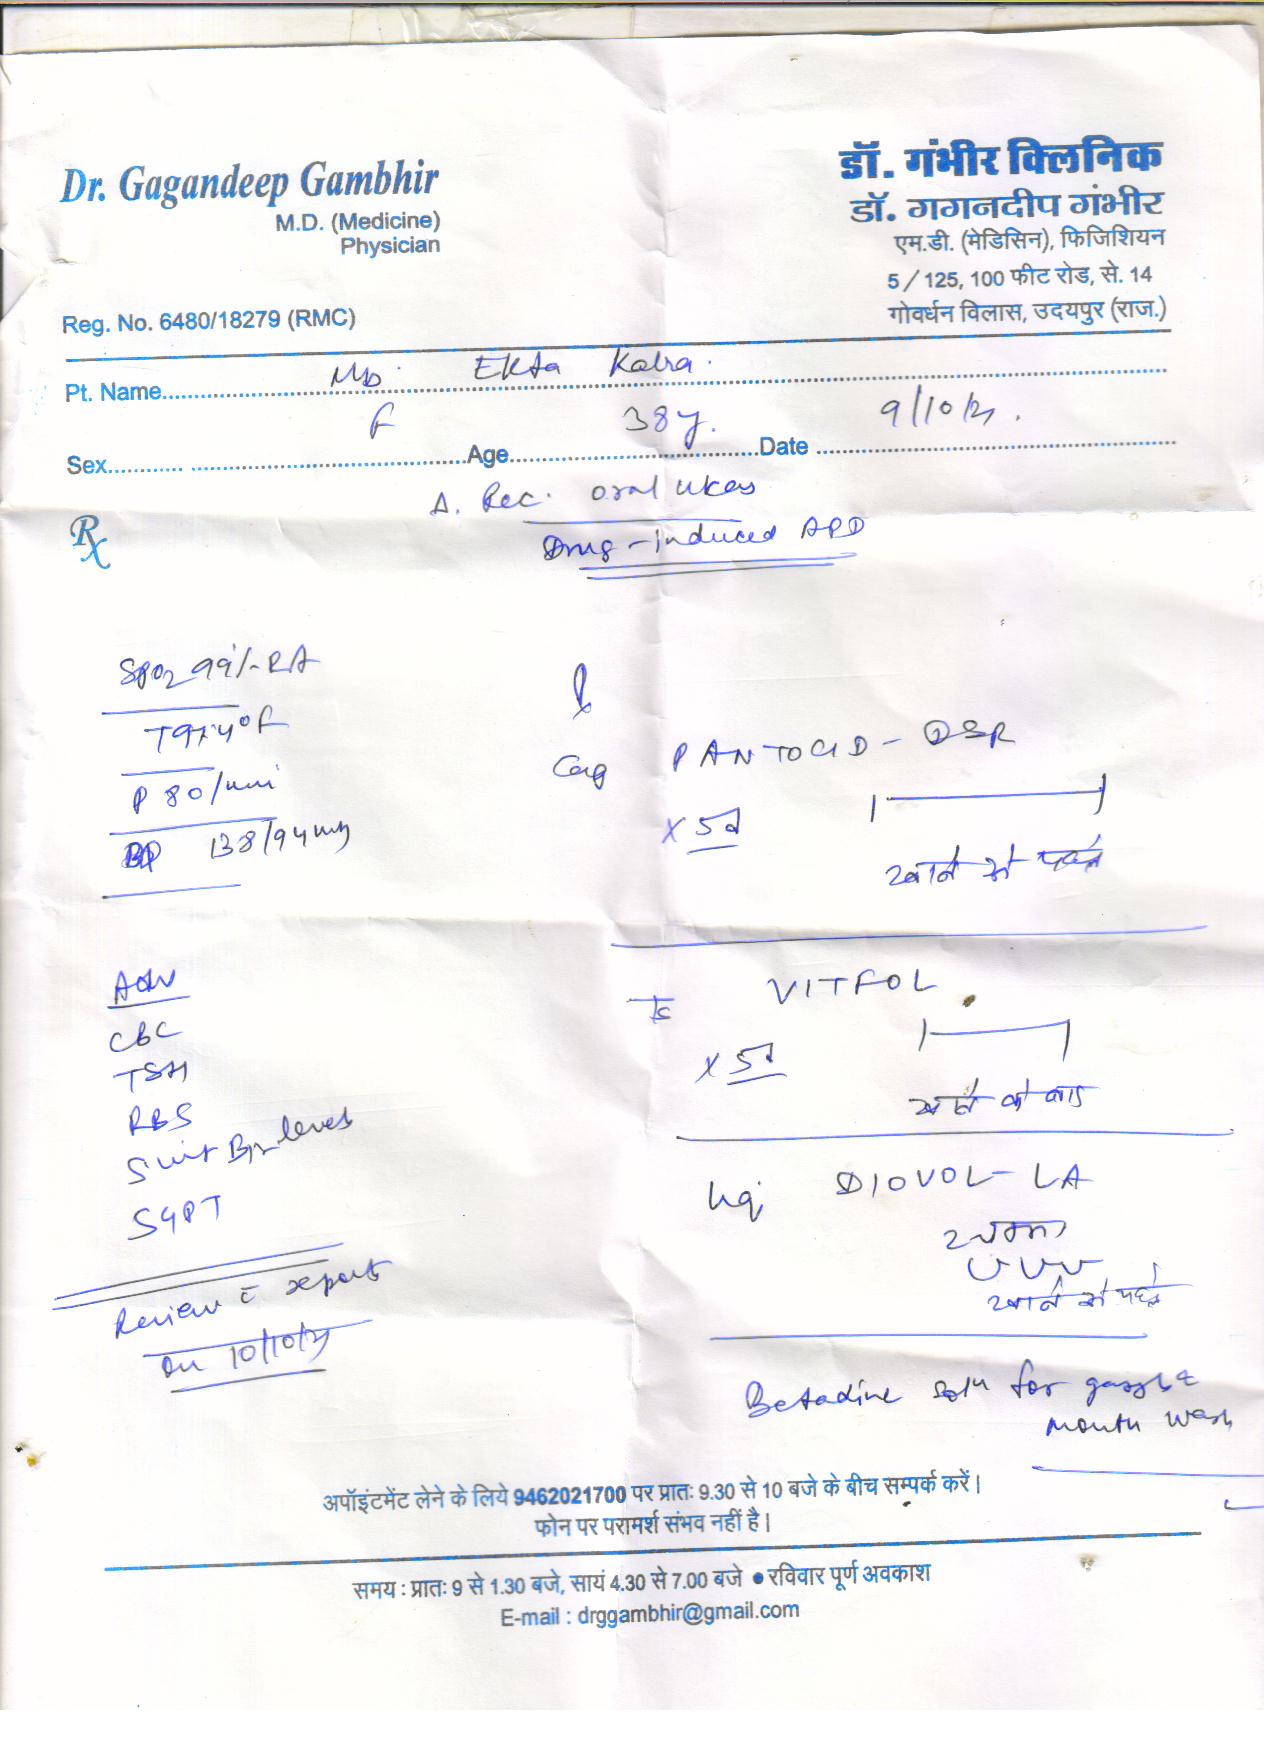 Dr. Gagandeep Gambhir
M.D. (Medicine)
Physician
Reg. No. 6480/18279 (RMC)
डॉ. गंभीर क्लिनिक
डॉ. गगनदीप गंभीर
एम.डी. (मेडिसिन), फिजिशियन
5/125, 100 फीट रोड, से. 14
गोवर्धन विलास, उदयपुर (राज.)
Pt. Name Ekta Kalra
Sex F Age 38y. Date 9/10/21.
Δ. Rec. oral ulcers
Rx
Drug-induced APD
SPO2 99% RA
T 97.4°F
P 80/min
BP 138/94 mmHg
Adv
CBC
TSH
RBS
S. vit B12 level
SGPT
Review c̄ report
on 10/10/21
Cap PANTOCID-DSR
x 5d
खाने से पहले
VITFOL
x 5d
खाने के बाद
DIOVOL-LA
2 चम्मच
खाने से पहले
Betadine Soln for gargle &
mouth wash
अपॉइंटमेंट लेने के लिये 9462021700 पर प्रातः 9.30 से 10 बजे के बीच सम्पर्क करें।
फोन पर परामर्श संभव नहीं है।
समय : प्रातः 9 से 1.30 बजे, सायं 4.30 से 7.00 बजे ● रविवार पूर्ण अवकाश
E-mail : drggambhir@gmail.com